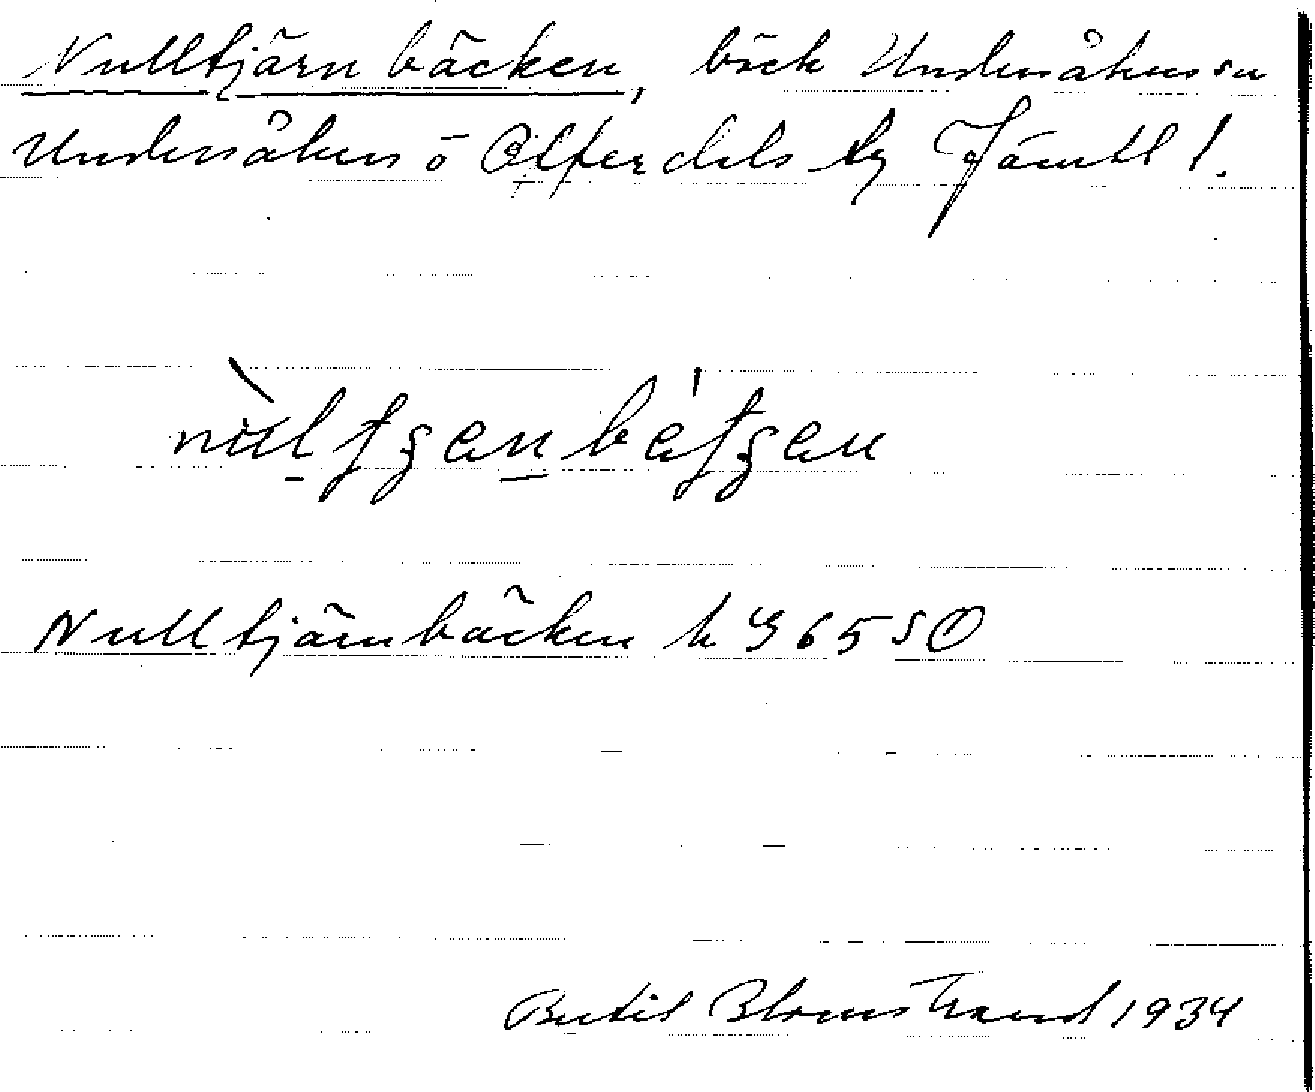 Nulltjärnbäcken, bäck Undersåkers sn
Undersåkers o Offerdals tg Jämtl l.
Nulltjärnbäcken k 965 SO
Bertil Blomstrand 1934